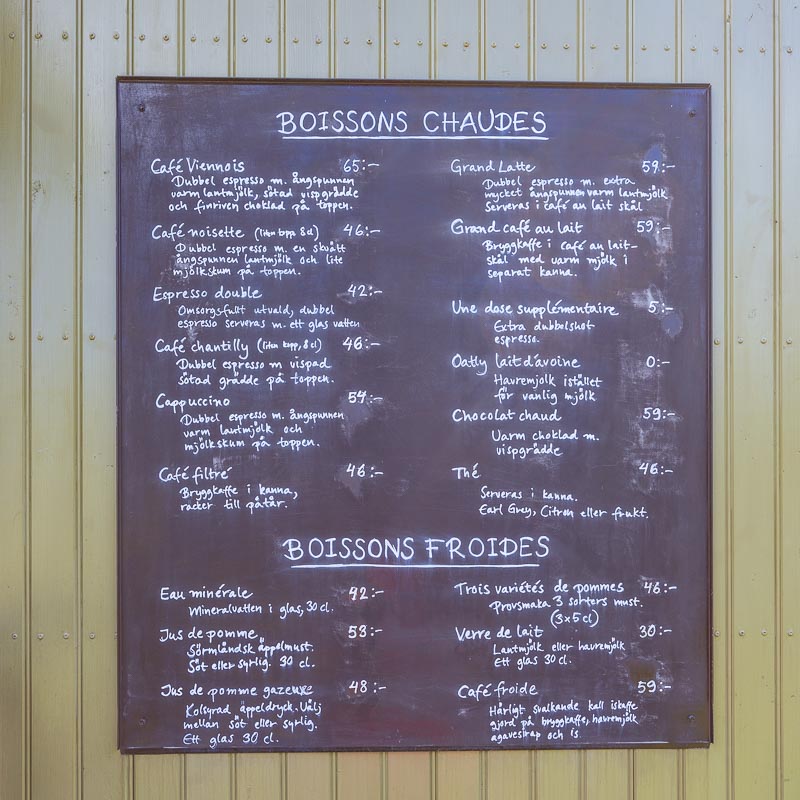 BOISSONS CHAUDES
Café Viennois 65:-
Dubbel espresso m. ångspunnen
varm lantmjölk, sötad vispgrädde
och finriven choklad på toppen.
Café noisette (liten kopp 8 cl) 46:-
Dubbel espresso m. en skvätt
ångspunnen lantmjölk och lite
mjölkskum på toppen.
Espresso double 42:-
Omsorgsfullt utvald, dubbel
espresso serveras m. ett glas vatten
Café chantilly (liten kopp, 8 cl) 46:-
Dubbel espresso m vispad
sötad grädde på toppen.
Cappuccino 54:-
Dubbel espresso m. ångspunnen
varm lantmjölk och
mjölkskum på toppen.
Café filtré 46:-
Bryggkaffe i kanna,
räcker till påtår.
Grand Latte 59:-
Dubbel espresso m. extra
mycket ångspunnen varm lantmjölk
Serveras i café au lait skål
Grand café au lait 59:-
Bryggkaffe i café au lait-
skål med varm mjölk i
separat kanna.
Une dose supplémentaire 5:-
Extra dubbelshot
espresso.
Oatly lait d'avoine 0:-
Havremjölk istället
för vanlig mjölk
Chocolat chaud 59:-
Varm choklad m.
vispgrädde
Thé 46:-
Serveras i kanna.
Earl Grey, Citron eller frukt.
BOISSONS FROIDES
Eau minérale 42:-
Mineralvatten i glas, 30 cl.
Jus de pomme 58:-
Sörmländsk äppelmust.
Söt eller syrlig. 30 cl.
Jus de pomme gazeuze 48:-
Kolsyrad äppeldryck. Välj
mellan söt eller syrlig.
Ett glas 30 cl.
Trois variétés de pommes 46:-
Provsmaka 3 sorters must.
(3x5 cl)
Verre de lait 30:-
Lantmjölk eller havremjölk
Ett glas 30 cl.
Café froide 59:-
Härligt svalkande kall iskaffe
gjord på bryggkaffe, havremjölk
agavesirap och is